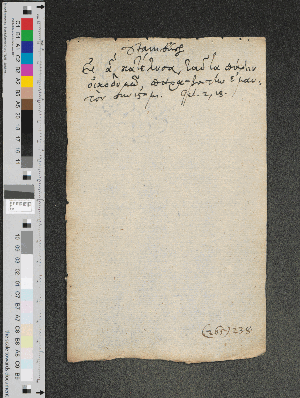 Εἰ ἃ κατέλυσα, ταῦτα πάλιν
οἰκοδομῶ, παραβάτην ἐμαυ-
τὸν συνίστημι. Gal. 2, 18.
238